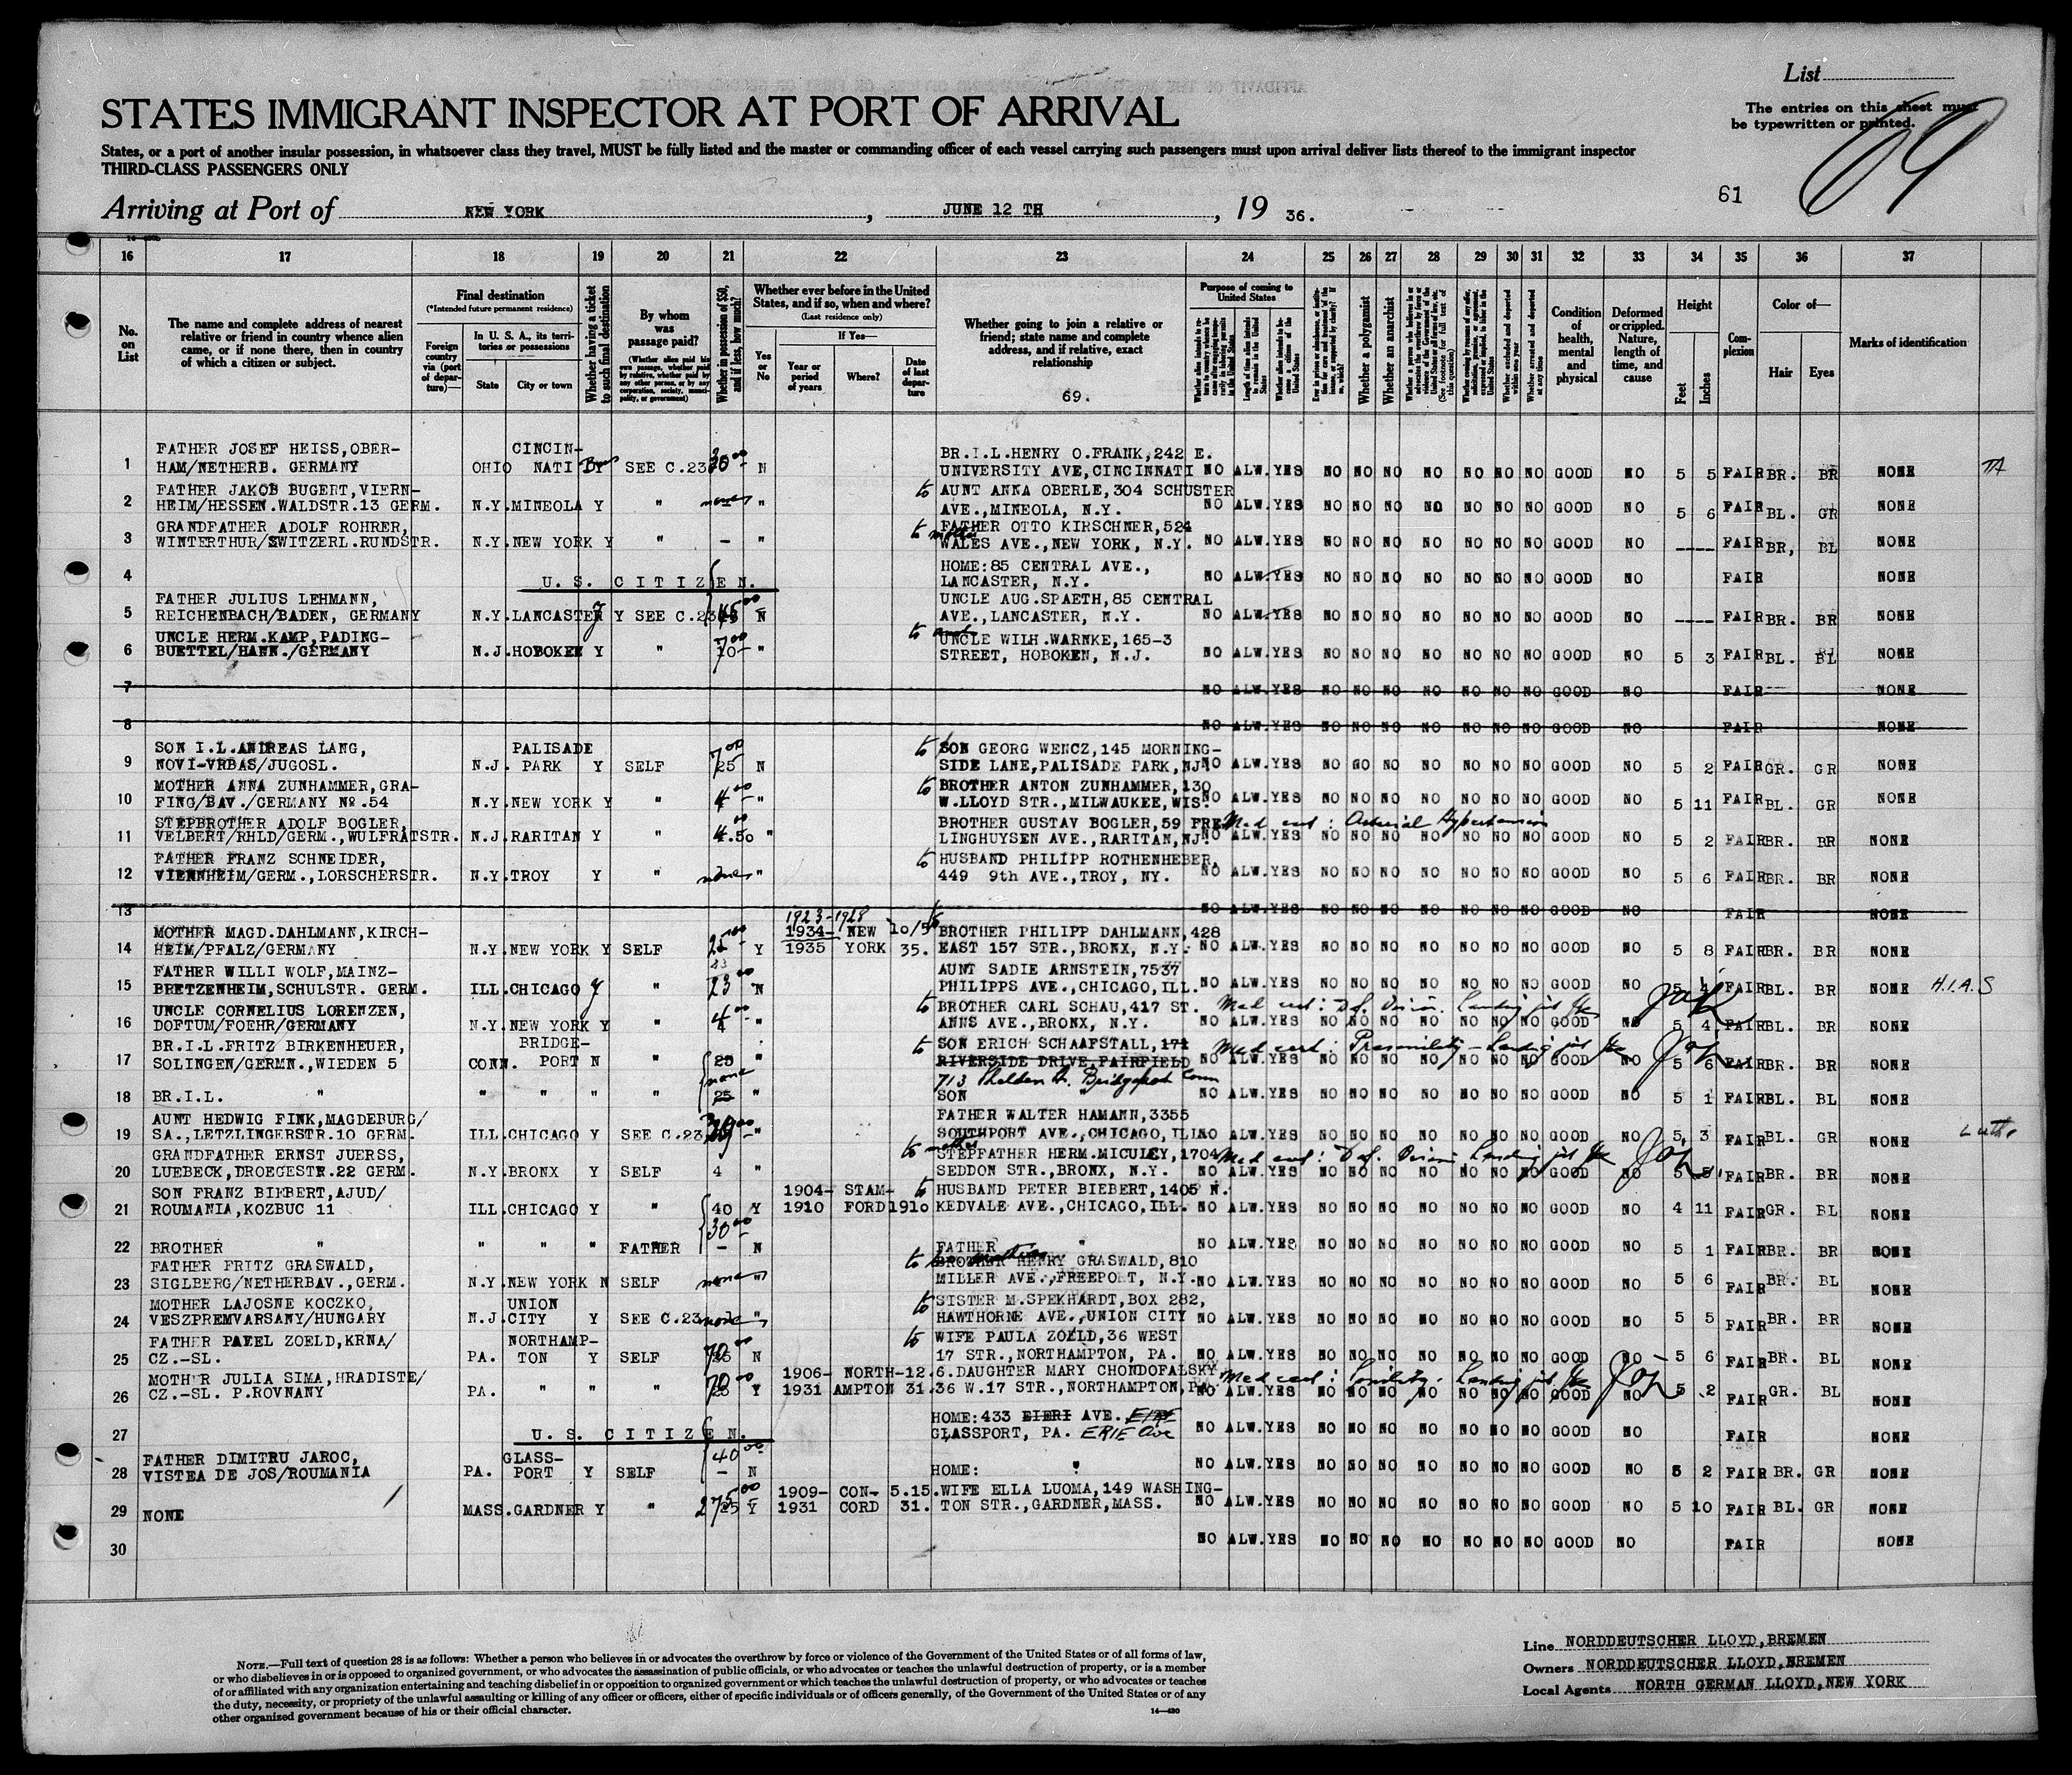 List
STATES IMMIGRANT INSPECTOR AT PORT OF ARRIVAL
The entries on this sheet must
be typewritten or printed.
69
States, or a port of another insular possession, in whatsoever class they travel, MUST be fully listed and the master or commanding officer of each vessel carrying such passengers must upon arrival deliver lists thereof to the immigrant inspector
THIRD-CLASS PASSENGERS ONLY
61
Arriving at Port of NEW YORK, JUNE 12 TH, 19 36.
16 17 18 19 20 21 22 23 24 25 26 27 28 29 30 31 32 33 34 35 36 37
No. on List
The name and complete address of nearest relative or friend in country whence alien came, or if none there, then in country of which a citizen or subject.
Final destination
(*Intended future permanent residence)
Foreign country via (port of departure)—
In U. S. A., its territories or possessions
State
City or town
Whether having a ticket to such final destination
By whom was passage paid?
(Whether alien paid his own passage, whether paid by relative, whether paid by any other person, or by any corporation, society, municipality, or government)
Whether in possession of $50, and if less, how much?
Whether ever before in the United States, and if so, when and where?
(Last residence only)
Yes or No
If Yes—
Year or period of years
Where?
Date of last departure
Whether going to join a relative or friend; state name and complete address, and if relative, exact relationship
69.
Purpose of coming to United States
Whether a polygamist
Whether an anarchist
Condition of health, mental and physical
Deformed or crippled. Nature, length of time, and cause
Height
Feet
Inches
Complexion
Color of—
Hair
Eyes
Marks of identification
FATHER JOSEF HEISS,OBER- CINCIN- BR.I.L.HENRY O.FRANK,242 E.
1 HAM/NETHERB. GERMANY OHIO NATI SEE C.23 N UNIVERSITY AVE,CINCINNATI NO ALW.YES NO NO NO NO NO NO NO GOOD NO 5 5 FAIR BR. BR NONE
FATHER JAKOB BUGERT,VIERN- to AUNT ANNA OBERLE,304 SCHUSTER
2 HEIM/HESSEN.WALDSTR.13 GERM. N.Y.MINEOLA Y " " AVE.,MINEOLA, N.Y. NO ALW.YES NO NO NO NO NO NO NO GOOD NO 5 6 FAIR BL. GR NONE
GRANDFATHER ADOLF ROHRER, to FATHER OTTO KIRSCHNER,524
3 WINTERTHUR/SWITZERL.RUNDSTR. N.Y.NEW YORK Y " - " WALES AVE.,NEW YORK, N.Y. NO ALW.YES NO NO NO NO NO NO NO GOOD NO ---- FAIR BR, BL NONE
HOME:85 CENTRAL AVE.,
4 U. S. CITIZEN. LANCASTER, N.Y. NO ALW.YES NO NO NO NO NO NO NO GOOD NO FAIR NONE
FATHER JULIUS LEHMANN, UNCLE AUG.SPAETH,85 CENTRAL
5 REICHENBACH/BADEN, GERMANY N.Y.LANCASTER Y SEE C.23 N AVE.,LANCASTER, N.Y. NO ALW.YES NO NO NO NO NO NO NO GOOD NO ---- FAIR BR. BR NONE
UNCLE HERM.KAMP,PADING- to UNCLE WILH.WARNKE,165-3
6 BUETTEL/HANN./GERMANY N.J.HOBOKEN Y " " STREET, HOBOKEN, N.J. NO ALW.YES NO NO NO NO NO NO NO GOOD NO 5 3 FAIR BL. BL NONE
7 NO ALW.YES NO NO NO NO NO NO NO GOOD NO FAIR NONE
8 NO ALW.YES NO NO NO NO NO NO NO GOOD NO FAIR NONE
SON I.L.ANDREAS LANG, PALISADE to SON GEORG WENCZ,145 MORNING-
9 NOVI-VRBAS/JUGOSL. N.J. PARK Y SELF 25 N SIDE LANE,PALISADE PARK,NJ. ALW.YES NO NO NO NO NO NO NO GOOD NO 5 2 FAIR GR. GR NONE
MOTHER ANNA ZUNHAMMER,GRA- to BROTHER ANTON ZUNHAMMER,130
10 FING/BAV./GERMANY No.54 N.Y.NEW YORK Y " " W.LLOYD STR.,MILWAUKEE,WIS. NO ALW.YES NO NO NO NO NO NO NO GOOD NO 5 11 FAIR BL. GR NONE
STEPBROTHER ADOLF BOGLER BROTHER GUSTAV BOGLER,59 FRE Med cert: Arterial Hypertension
11 VELBERT/RHLD/GERM.,WULFRATSTR. N.J.RARITAN Y " 4.50 " LINGHUYSEN AVE.,RARITAN,NJ. NO ALW.YES NO NO NO NO NO NO NO GOOD NO 5 2 FAIR BR. BR NONE
FATHER FRANZ SCHNEIDER, to HUSBAND PHILIPP ROTHENHEBER,
12 VIERNHEIM/GERM.,LORSCHERSTR. N.Y.TROY Y " none " 449 9th AVE.,TROY, NY. NO ALW.YES NO NO NO NO NO NO NO GOOD NO 5 6 FAIR BR. BR NONE
13 NO ALW.YES NO NO NO NO NO NO NO GOOD NO FAIR NONE
1923-1928
MOTHER MAGD.DAHLMANN,KIRCH- 1934- NEW 10/5 BROTHER PHILIPP DAHLMANN,428
14 HEIM/PFALZ/GERMANY N.Y.NEW YORK Y SELF Y 1935 YORK 35. EAST 157 STR.,BRONX, N.Y. NO ALW.YES NO NO NO NO NO NO NO GOOD NO 5 8 FAIR BR. BR NONE
FATHER WILLI WOLF,MAINZ- AUNT SADIE ARNSTEIN,7537
15 BRETZENHEIM,SCHULSTR. GERM. ILL.CHICAGO y " 23 N PHILIPPS AVE.,CHICAGO,ILL. NO ALW.YES NO NO NO NO NO NO NO GOOD NO 5 FAIR BL. BR NONE H.I.A.S
UNCLE CORNELIUS LORENZEN, to BROTHER CARL SCHAU,417 ST. Med cert: Def. Vision.
16 DOFTUM/FOEHR/GERMANY N.Y.NEW YORK Y " 4 " ANNS AVE.,BRONX, N.Y. NO ALW.YES NO NO NO NO NO NO NO GOOD NO 5 4 FAIR BL. BR NONE
BR.I.L.FRITZ BIRKENHEUER, BRIDGE- to SON ERICH SCHAAFSTALL,171 Med cert:
17 SOLINGEN/GERMN.,WIEDEN 5 CONN. PORT N " 25 " RIVERSIDE DRIVE,FAIRFIELD NO ALW.YES NO NO NO NO NO NO NO GOOD NO 5 6 FAIR BR. BR NONE
none 713 Shelden St. Bridgeport Conn
18 BR.I.L. " " " " " 25 " SON NO ALW.YES NO NO NO NO NO NO NO GOOD NO 5 1 FAIR BL. BL NONE
AUNT HEDWIG FINK,MAGDEBURG/ FATHER WALTER HAMANN,3355
19 SA.,LETZLINGERSTR.10 GERM. ILL.CHICAGO Y SEE C.23 " SOUTHPORT AVE.,CHICAGO,ILL. NO ALW.YES NO NO NO NO NO NO NO GOOD NO 5 3 FAIR BL. GR NONE
GRANDFATHER ERNST JUERSS, to STEPFATHER HERM.MICULEY,1704 Med cert: Def. Vision
20 LUEBECK,DROEGESTR.22 GERM. N.Y.BRONX Y SELF 4 " SEDDON STR.,BRONX, N.Y. NO ALW.YES NO NO NO NO NO NO NO GOOD NO 5 FAIR BR. BR NONE
SON FRANZ BIEBERT,AJUD/ 1904- STAM- to HUSBAND PETER BIEBERT,1405 N.
21 ROUMANIA,KOZBUC 11 ILL.CHICAGO Y " 40 Y 1910 FORD 1910 KEDVALE AVE.,CHICAGO,ILL. NO ALW.YES NO NO NO NO NO NO NO GOOD NO 4 11 FAIR GR. BL NONE
30 00
22 BROTHER " " " " FATHER - N FATHER " NO ALW.YES NO NO NO NO NO NO NO GOOD NO 5 1 FAIR BR. BR NONE
FATHER FRITZ GRASWALD, to BROTHER HENRY GRASWALD,810
23 SIGLBERG/NETHERBAV.,GERM. N.Y.NEW YORK N SELF none " MILLER AVE.,FREEPORT, N.Y. NO ALW.YES NO NO NO NO NO NO NO GOOD NO 5 6 FAIR BR. BL NONE
MOTHER LAJOSNE KOCZKO, UNION to SISTER M.SPEKHARDT,BOX 282,
24 VESZPREMVARSANY/HUNGARY N.J.CITY Y SEE C.23 none " HAWTHORNE AVE.,UNION CITY NO ALW.YES NO NO NO NO NO NO NO GOOD NO 5 5 FAIR BR. BR NONE
FATHER PAVEL ZOELD,KRNA/ NORTHAMP- to WIFE PAULA ZOELD,36 WEST
25 CZ.-SL. PA. TON Y SELF N 17 STR.,NORTHAMPTON, PA. NO ALW.YES NO NO NO NO NO NO NO GOOD NO 5 6 FAIR BR. BL NONE
MOTHER JULIA SIMA,HRADISTE/ 1906- NORTH- 12.6. DAUGHTER MARY CHONDOFALSKY Med cert: Senility.
26 CZ.-SL. P.ROVNANY PA. " " " Y 1931 AMPTON 31. 36 W.17 STR.,NORTHAMPTON, NO ALW.YES NO NO NO NO NO NO NO GOOD NO 5 2 FAIR GR. BL NONE
HOME:433 EIERI AVE.
27 U. S. CITIZEN. GLASSPORT, PA. ERIE Ave NO ALW.YES NO NO NO NO NO NO NO GOOD NO FAIR NONE
FATHER DIMITRU JAROC, GLASS- 40 00
28 VISTEA DE JOS/ROUMANIA PA. PORT Y SELF - N HOME: " NO ALW.YES NO NO NO NO NO NO NO GOOD NO 5 2 FAIR BR. GR NONE
1909- CON- 5.15. WIFE ELLA LUOMA,149 WASHING-
29 NONE MASS.GARDNER Y " Y 1931 CORD 31. TON STR.,GARDNER,MASS. NO ALW.YES NO NO NO NO NO NO NO GOOD NO 5 10 FAIR BL. GR NONE
30 NO ALW.YES NO NO NO NO NO NO NO GOOD NO FAIR NONE
NOTE.—Full text of question 28 is as follows: Whether a person who believes in or advocates the overthrow by force or violence of the Government of the United States or of all forms of law,
or who disbelieves in or is opposed to organized government, or who advocates the assassination of public officials, or who advocates or teaches the unlawful destruction of property, or is a member
of or affiliated with any organization entertaining and teaching disbelief in or opposition to organized government or which teaches the unlawful destruction of property, or who advocates or teaches
the duty, necessity, or propriety of the unlawful assaulting or killing of any officer or officers, either of specific individuals or of officers generally, of the Government of the United States or of any
other organized government because of his or their official character.
14—430
Line NORDDEUTSCHER LLOYD,BREMEN
Owners NORDDEUTSCHER LLOYD,BREMEN
Local Agents NORTH GERMAN LLOYD,NEW YORK